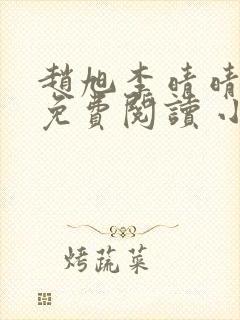 趙旭李晴晴
免費閱讀小
烤蔬菜